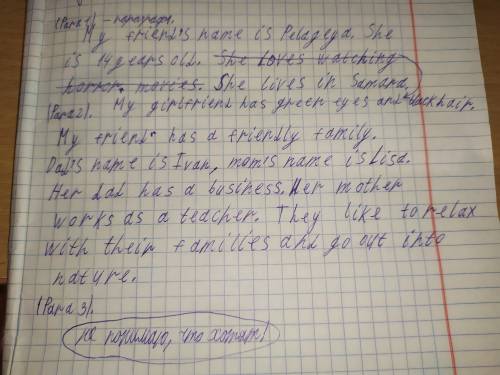 (Para 1) - параграф.
My friend's name is Pelageya. She
is 14 years old. She loves watching
horror movies. She lives in Samara
(Para 2). My girlfriend has green eyes and black hair.
My friend has a friendly family.
Dad's name is Ivan, mam's name is Lisa.
Her dad has a business. Her mother
works as a teacher. They like to relax
with their families and go out into
nature.
(Para 3).
не понимаю, что хотят!